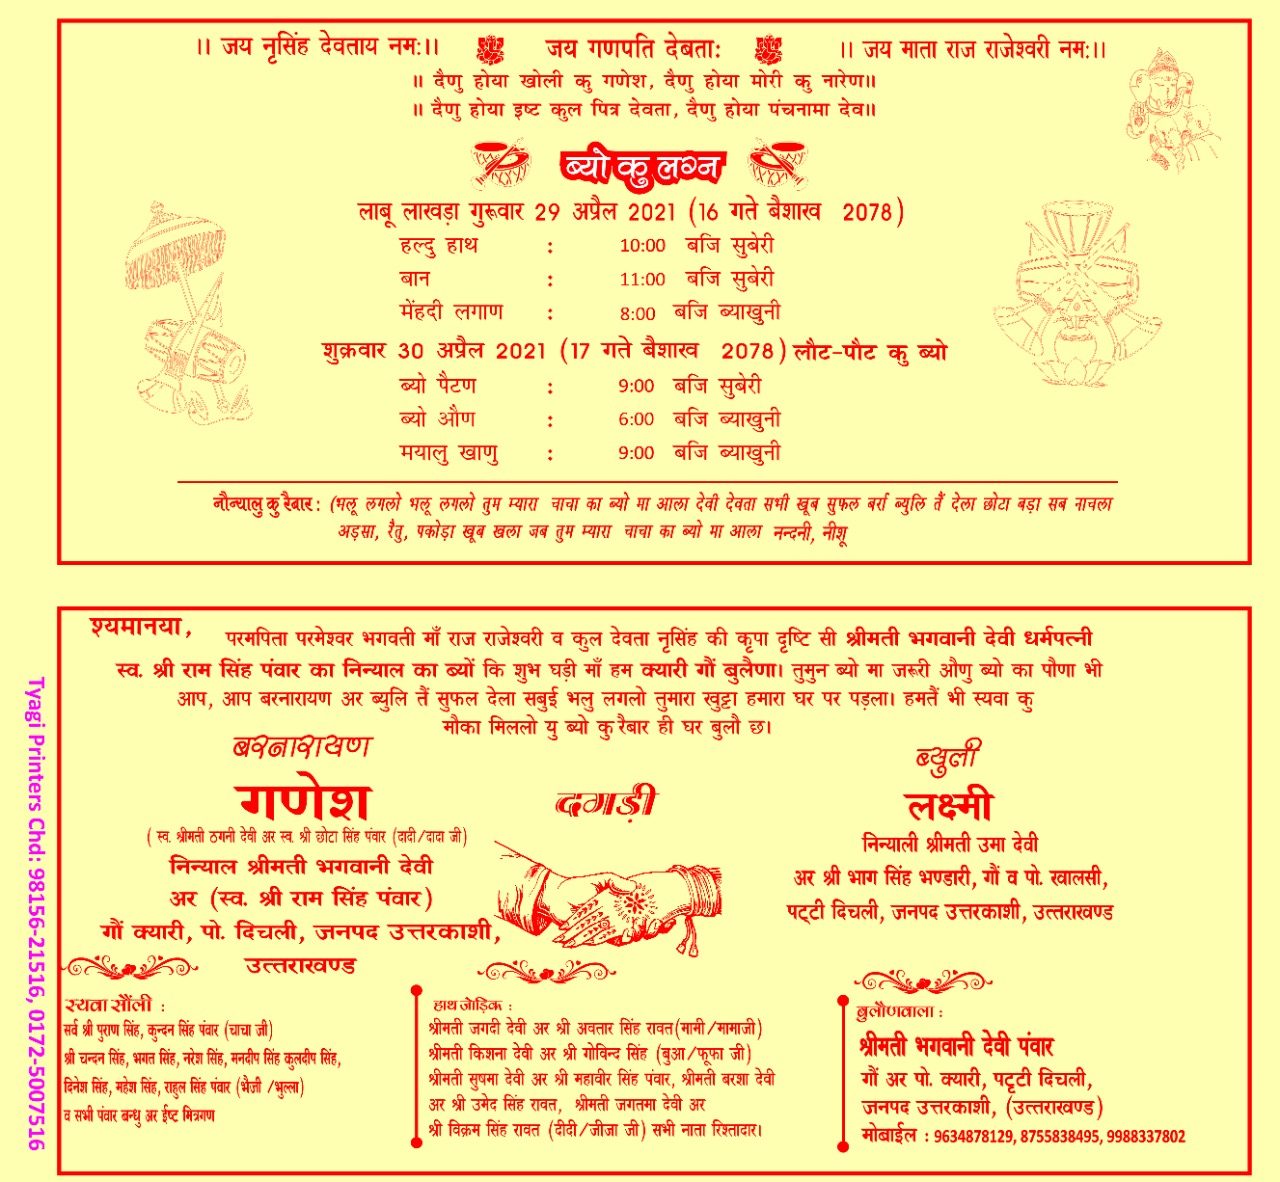 ।। जय नृसिंह देवताय नम:।। जय गणपति देबता: ।। जय माता राज राजेश्वरी नम:।।
॥ दैणु होया खोली कु गणेश, दैणु होया मोरी कु नारेण॥
॥ दैणु होया इष्ट कुल पित्र देवता, दैणु होया पंचनामा देव॥
ब्यो कु लग्न
लाबू लाखड़ा गुरूवार 29 अप्रैल 2021 (16 गते बैशाख 2078)
हल्दु हाथ : 10:00 बजि सुबेरी
बान : 11:00 बजि सुबेरी
मेंहदी लगाण : 8:00 बजि ब्याखुनी
शुक्रवार 30 अप्रैल 2021 (17 गते बैशाख 2078) लौट-पौट कु ब्यो
ब्यो पैटण : 9:00 बजि सुबेरी
ब्यो औण : 6:00 बजि ब्याखुनी
मयालु खाणु : 9:00 बजि ब्याखुनी
नौन्यालु कु रैबार : (भलू लगलो भलू लगलो तुम म्यारा चाचा का ब्यो मा आला देवी देवता सभी खूब सुफल बर्रा ब्युलि तैं देला छोटा बड़ा सब नाचला
अड़सा, रैतु, पकोड़ा खूब खला जब तुम म्यारा चाचा का ब्यो मा आला नन्दनी, नीशू
श्यमानया,
परमपिता परमेश्वर भगवती माँ राज राजेश्वरी व कुल देवता नृसिंह की कृपा दृष्टि सी श्रीमती भगवानी देवी धर्मपत्नी
स्व. श्री राम सिंह पंवार का निन्याल का ब्यों कि शुभ घड़ी माँ हम क्यारी गौं बुलैणा। तुमुन ब्यो मा जरूरी औणु ब्यो का पौणा भी
आप, आप बरनारायण अर ब्युलि तैं सुफल देला सबुई भलु लगलो तुमारा खुट्टा हमारा घर पर पड़ला। हमतैं भी स्यवा कु
मौका मिललो यु ब्यो कु रैबार ही घर बुलौ छ।
बरनारायण
गणेश
( स्व. श्रीमती ठगनी देवी अर स्व. श्री छोटा सिंह पंवार (दादी/दादा जी)
निन्याल श्रीमती भगवानी देवी
अर (स्व. श्री राम सिंह पंवार)
गौं क्यारी, पो. दिचली, जनपद उत्तरकाशी,
उत्तराखण्ड
दगड़ी
ब्युली
लक्ष्मी
निन्याली श्रीमती उमा देवी
अर श्री भाग सिंह भण्डारी, गौं व पो. खालसी,
पट्टी दिचली, जनपद उत्तरकाशी, उत्तराखण्ड
स्यवा सौंली :
सर्व श्री पुराण सिंह, कुन्दन सिंह पंवार (चाचा जी)
श्री चन्दन सिंह, भगत सिंह, नरेश सिंह, मनदीप सिंह कुलदीप सिंह,
दिनेश सिंह, महेश सिंह, राहुल सिंह पंवार (भैजी /भुल्ला)
व सभी पंवार बन्धु अर ईष्ट मित्रगण
हाथ जोड़िक :
श्रीमती जगदी देवी अर श्री अवतार सिंह रावत(मामी/मामाजी)
श्रीमती किशना देवी अर श्री गोविन्द सिंह (बुआ/फूफा जी)
श्रीमती सुषमा देवी अर श्री महावीर सिंह पंवार, श्रीमती बरशा देवी
अर श्री उमेद सिंह रावत, श्रीमती जगतमा देवी अर
श्री विक्रम सिंह रावत (दीदी/जीजा जी) सभी नाता रिश्तादार।
बुलौणवाला :
श्रीमती भगवानी देवी पंवार
गौं अर पो. क्यारी, पट्टी दिचली,
जनपद उत्तरकाशी, (उत्तराखण्ड)
मोबाईल : 9634878129, 8755838495, 9988337802
Tyagi Printers Chd: 98156-21516, 0172-5007516